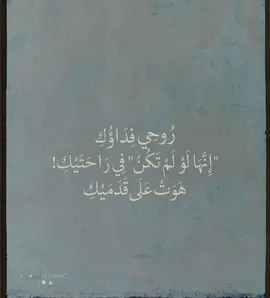 رُوحِي فِدَاؤُكِ
"إِنَّهَا لَوْ لَمْ تَكُنْ" فِي رَاحَتَيْكِ!
هَوَتْ عَلَى قَدَمَيْكِ